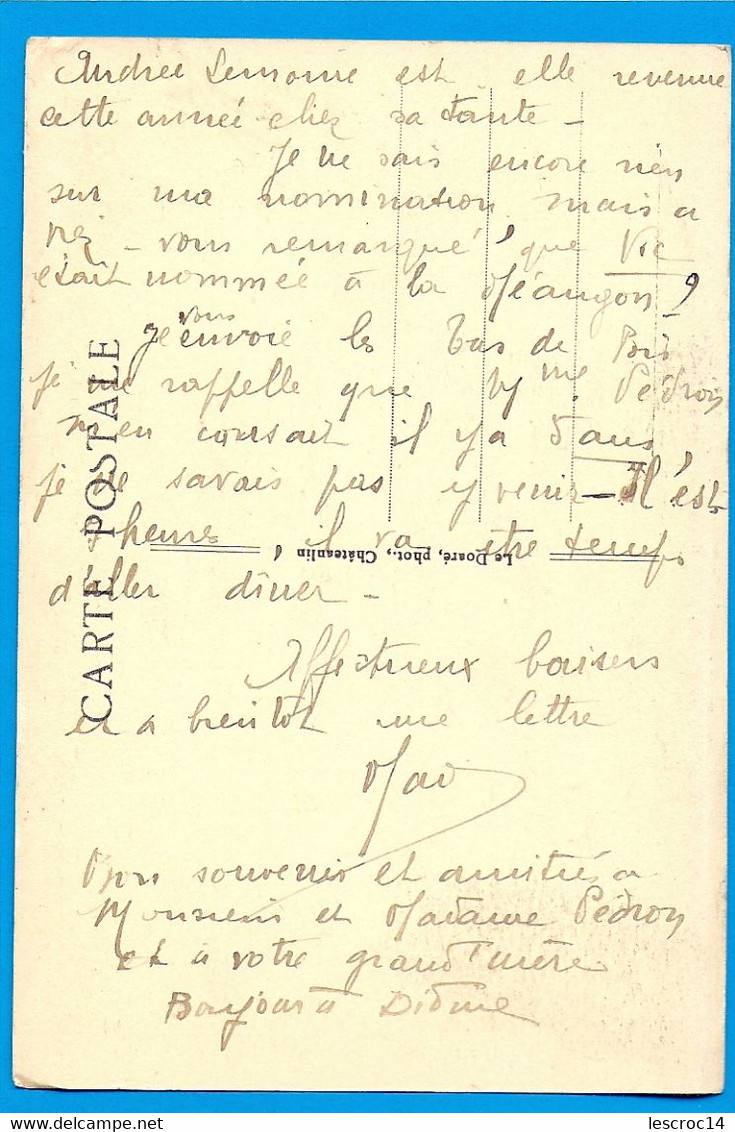 Andrée Lemoine est elle revenue
cette année chez sa tante -
Je ne sais encore rien
sur ma nomination mais a
vez - vous remarqué que Vic
était nommée à la Méaugon ?
Je vous envoie les bas de
je me rappelle que Mme Pédron
m'en causait il y a 5 ans
je ne savais pas y venir - Il est
heures il va être temps
d'aller dîner -
Affectueux baisers
et a bientôt une lettre
Mad
Bon souvenir et amitiés a
Monsieur et Madame Pédron
et à votre grand'mère
Bonjour à
CARTE POSTALE
Le Doaré, phot., Châteaulin
lescroc14